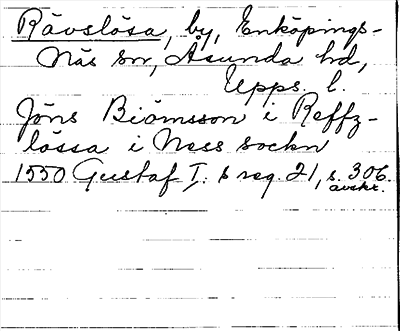 Rävslösa, by, Enköpings-
Näs sn, Åsunda hd,
Upps. l.
Jöns Biömsson i Reffz-
lössa i Ness sockn
1550 Gustaf I:s reg. 21, s. 306.
avskr.